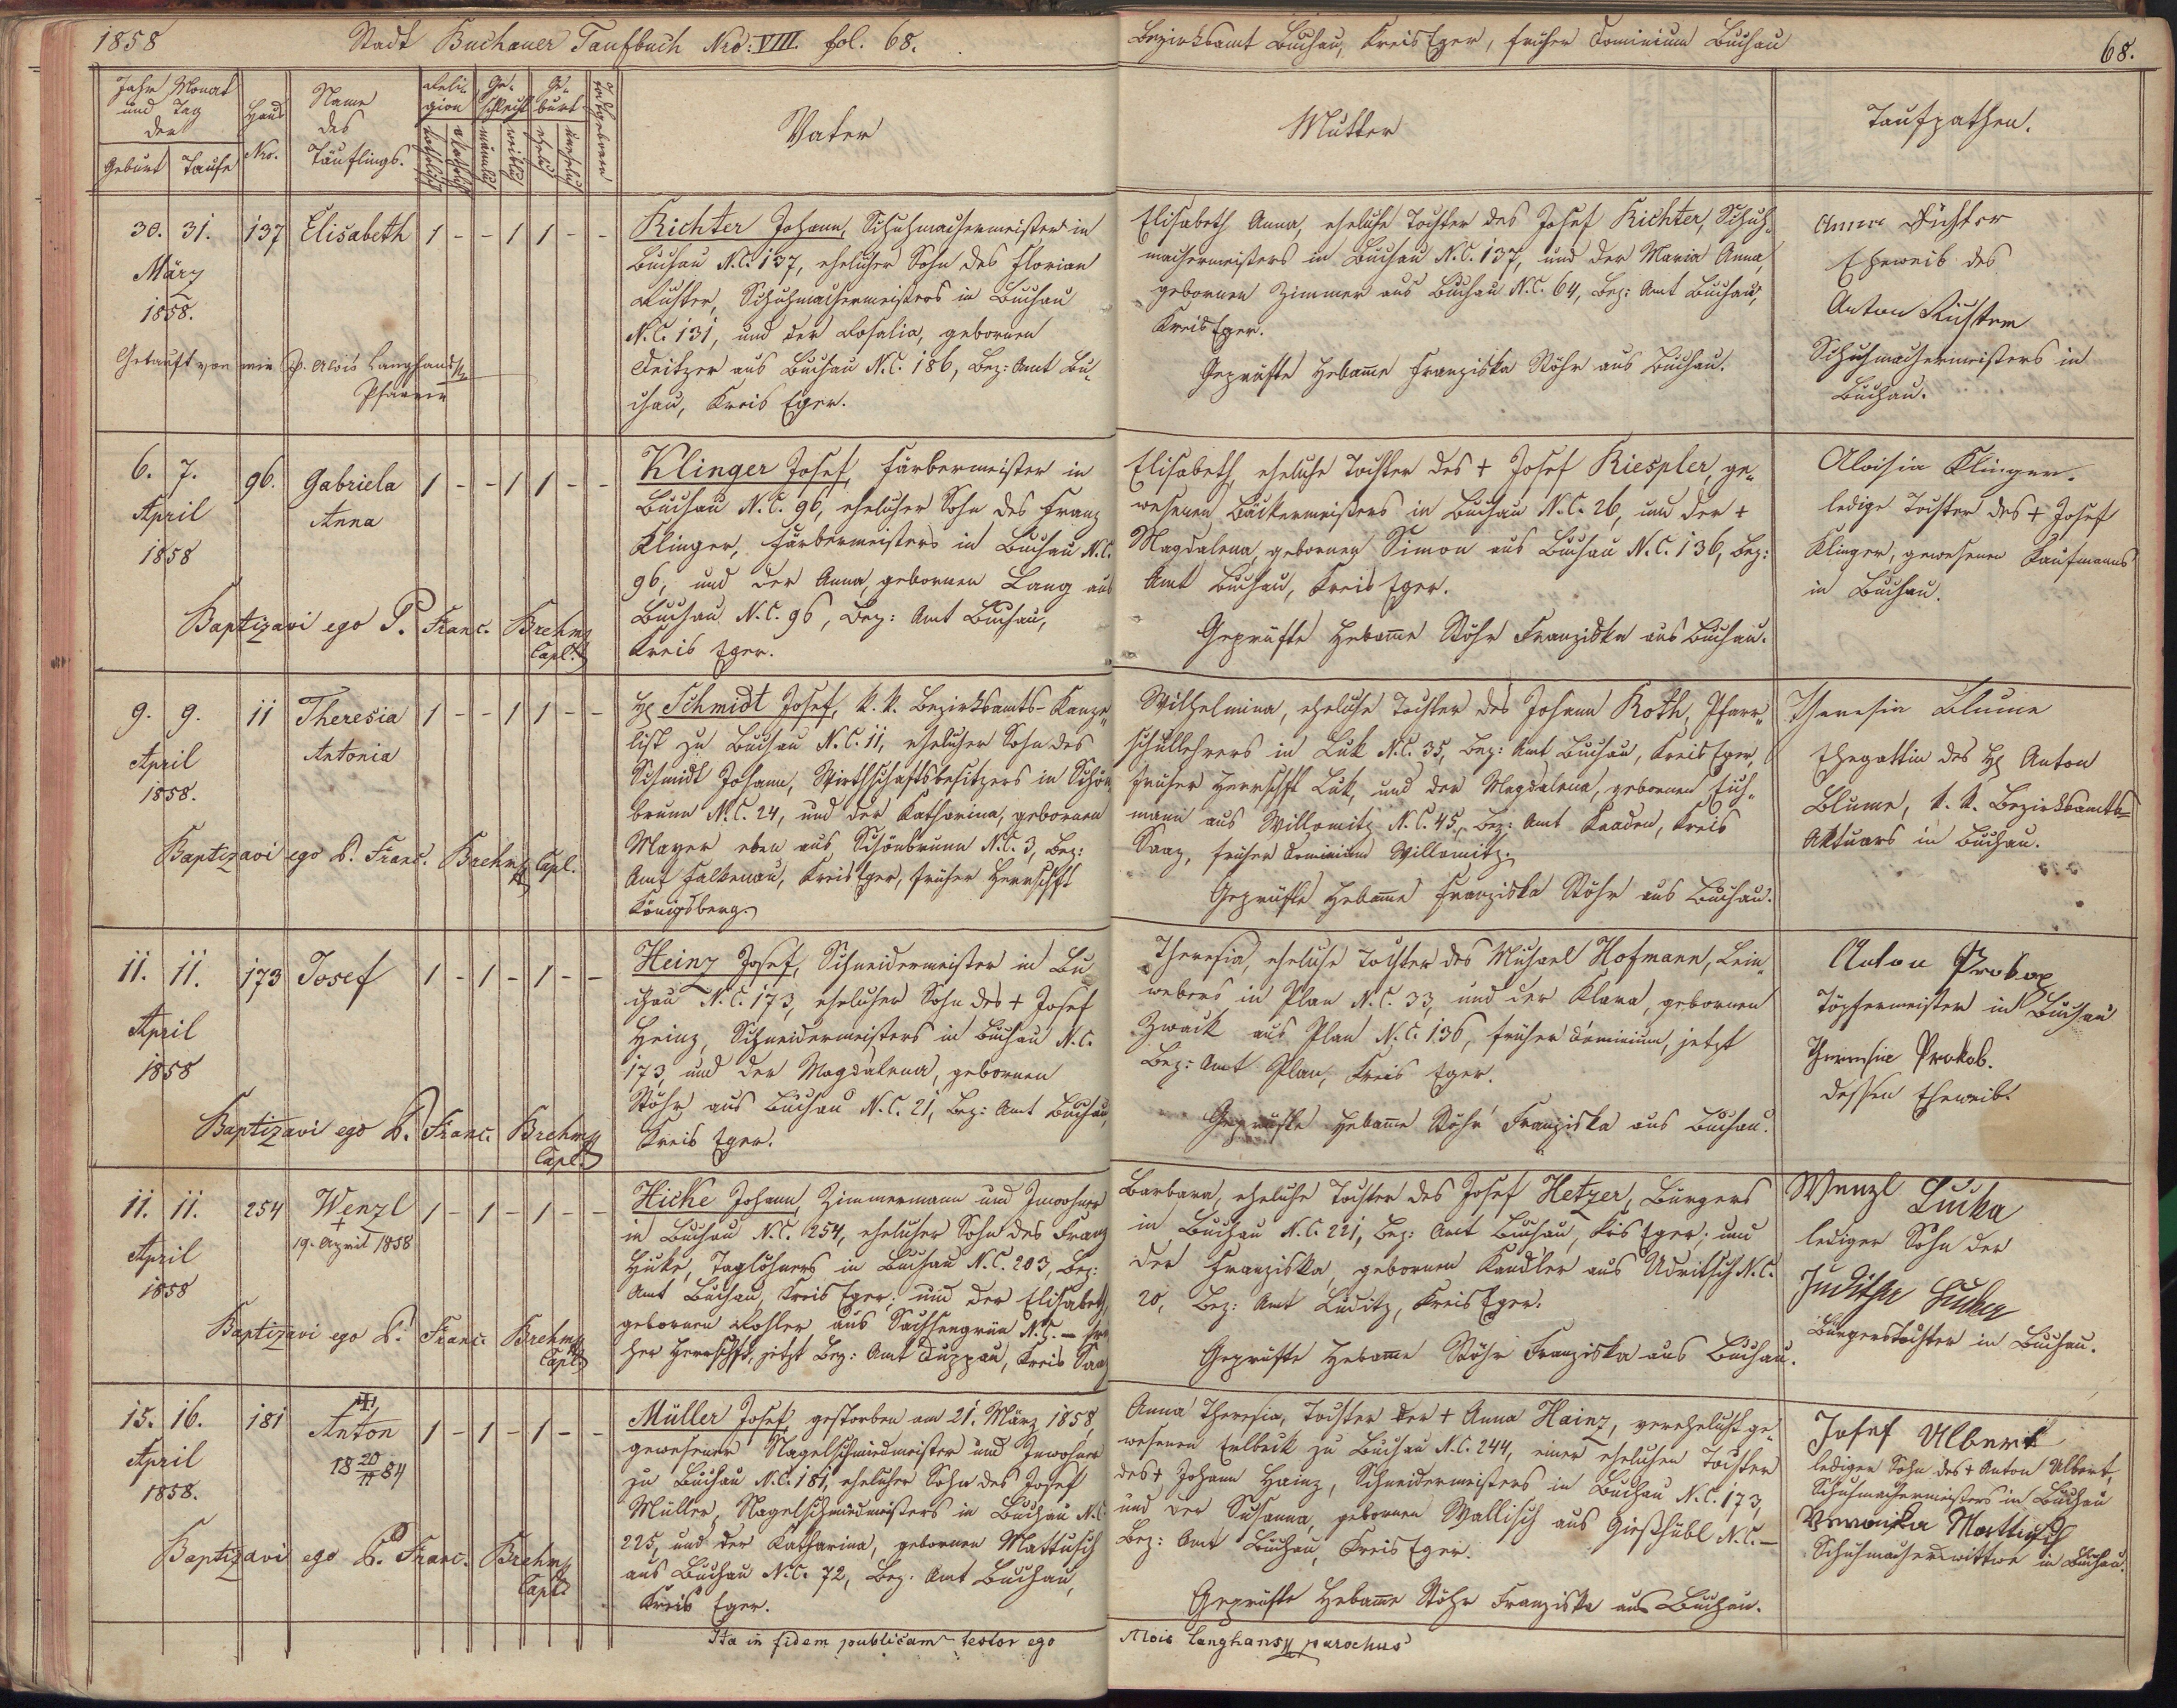 1858
Stadt Buchauer Taufbuch Nro: VIII. fol. 68.
Bezirksamt Buchau, Kreis Eger, früher Dominium Buchau
68.
Jahr Monat
und Tag
der
Geburt Taufe
Haus
Nro.
Name
des
Täuflings.
Reli-
gion
katholisch
Ge-
schlecht
männlich
weiblich
Ge-
burt
ehelich
unehelich
Todtgeboren
Vater
Mutter
Taufpathen.
30. 31. 137 Elisabeth 1 - - 1 1 - -
März
1858.
Getauft von mir P. Alois Langhans
Pfarrer
Richter Johann, Schuhmachermeister in
Buchau N.C. 137, ehelicher Sohn des Florian
Richter, Schuhmachermeisters in Buchau
N.C. 131, und der Rosalia, gebornen
aus Buchau N.C. 186, Bez: Amt Bu-
chau, Kreis Eger.
Elisabeth Anna, eheliche Tochter des Josef Richter, Schuh-
machermeisters in Buchau N.C. 137, und der Maria Anna,
gebornen Zimmer aus Buchau N.C. 64, Bez: Amt Buchau,
Kreis Eger.
Geprüfte Hebamme Franziska Stöhr aus Buchau.
Anna Richter
Eheweib des
Anton
Schuhmachermeisters in
Buchau.
6. 7. 96. Gabriela 1 - - 1 1 - -
April Anna
1858
Baptizavi ego P. Franc. Brehm
Capl.
Klinger Josef, Färbermeister in
Buchau N.C. 96, ehelicher Sohn des Franz
Klinger, Färbermeisters in Buchau N.C.
96, und der Anna, gebornen Lang aus
Buchau N.C. 96, Bez: Amt Buchau,
Kreis Eger.
Elisabeth, eheliche Tochter des + Josef Riespler, ge-
wesenen Bäckermeisters in Buchau N.C. 26, und der +
Magdalena, gebornen Simon aus Buchau N.C. 136, Bez:
Amt Buchau, Kreis Eger.
Geprüfte Hebamme Stöhr Franziska aus Buchau.
Aloisia Klinger.
ledige Tochter des + Josef
Klinger, gewesenen Kaufmanns
in Buchau.
9. 9. 11 Theresia 1 - - 1 1 - -
April Antonia
1858.
Baptizavi ego P. Franc. Brehm Capl.
H. Schmidt Josef, k. k. Bezirksamts-Kanze-
list zu Buchau N.C. 11, ehelicher Sohn des
Schmidt Johann, Wirthschaftsbesitzers in Schön
brunn N.C. 24, und der Katharina, gebornen
Mayer eben aus Schönbrunn N.C. 3, Bez:
Amt Falkenau, Kreis Eger, früher Herrschft
Königsberg.
Wilhelmina, eheliche Tochter des Johann Roth, Pfarr-
schullehrers in Luk N.C. 35, Bez: Amt Buchau, Kreis Eger,
früher Herrschft Luk, und der Magdalena, gebornen Eich-
mann aus Willomitz N.C. 45, Bez: Amt Kaaden, Kreis
Saaz, früher Dominium Willomitz.
Geprüfte Hebamme Franziska Stöhr aus Buchau.
Theresia Blume
Ehegattin des H. Anton
Blume, k. k. Bezirksamts-
Aktuars in Buchau.
11. 11. 173 Josef 1 - 1 - 1 - -
April
1858
Baptizavi ego P. Franc. Brehm
Capl.
Heinz Josef, Schneidermeister in Bu
chau N.C. 173, ehelicher Sohn des + Josef
Heinz, Schneidermeisters in Buchau N.C.
173, und der Magdalena, gebornen
Stöhr aus Buchau N.C. 21, Bez: Amt Buchau,
Kreis Eger.
Theresia, eheliche Tochter des Michael Hofmann, Lein-
webers in Plan N.C. 33, und der Klara, gebornen
Zwack aus Plan N.C. 136, früher Dominium, jetzt
Bez: Amt Plan, Kreis Eger.
Geprüfte Hebamme Stöhr Franziska aus Buchau.
Anton Prokop
Töpfermeister in Buchau
Theresia Prokob.
dessen Eheweib.
11. 11. 254 Wenzl 1 - 1 - 1 - -
April + 19. April 1858
1858
Baptizavi ego P. Franc. Brehm
Capl.
Hicke Johann, Zimmermann und Inwohner
in Buchau N.C. 254, ehelicher Sohn des Franz
Hicke, Taglöhners in Buchau N.C. 203, Bez:
Amt Buchau, Kreis Eger; und der Elisabeth,
gebornen Kohler aus Sachsengrün N.C. - frü
her Herrschft, jetzt Bez: Amt Duppau, Kreis Saaz
Barbara, eheliche Tochter des Josef Hetzer, Bürgers
in Buchau N.C. 221, Bez: Amt Buchau, Krs Eger; und
der Franziska, gebornen Kandler aus Udritsch N.C.
20, Bez: Amt Luditz, Kreis Eger.
Geprüfte Hebamme Stöhr Franziska aus Buchau.
Wenzl
lediger Sohn der
Juditha
Bürgerstochter in Buchau.
15. 16. 181 Anton 1 - 1 - 1 - -
April 18 20/11 84
1858.
Baptizavi ego P. Franc. Brehm
Capl.
Müller Josef, gestorben am 21. März 1858,
gewesener Nagelschmiedmeister und Inwohner
zu Buchau N.C. 181, ehelicher Sohn des Josef
Müller, Nagelschmiedmeisters in Buchau N.C.
225, und der Katharina, gebornen Mattusch
aus Buchau N.C. 72, Bez. Amt Buchau,
Kreis Eger.
Anna Theresia, Tochter der + Anna Hainz, verehelicht ge-
wesenen Erlbeck zu Buchau N.C. 244, einer ehelichen Tochter
des + Johann Hainz, Schneidermeisters in Buchau N.C. 173,
und der Susanna, gebornen Wallisch aus Gießhübl N.C. -
Bez: Amt Buchau, Kreis Eger.
Geprüfte Hebamme Stöhr Franziska aus Buchau.
Josef Ulbert
lediger Sohn des + Anton Ulbert,
Schuhmachermeisters in Buchau
Veronika
Schuhmacherswittwe in Buchau.
Ita in fidem publicam testor ego
Alois Langhans parochus